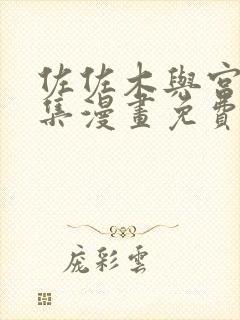 佐佐木與宮
集漫畫免費
庞彩雲